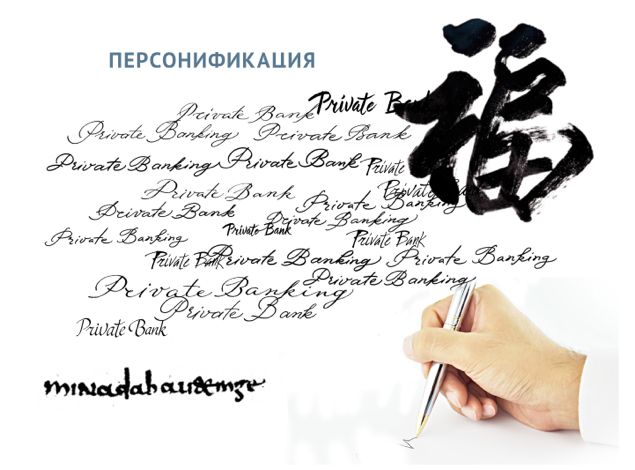 ПЕРСОНИФИКАЦИЯ
福
Private Bank Private Bank
Private Banking Private Bank
Private Banking Private Bank Private
Private Bank Private Bank
Private Banking
Private Bank Private Banking
Private Banking Private Bank Private Bank
Private Bank Private Banking Private Banking
Private Banking Private Banking
Private Bank
Private Bank